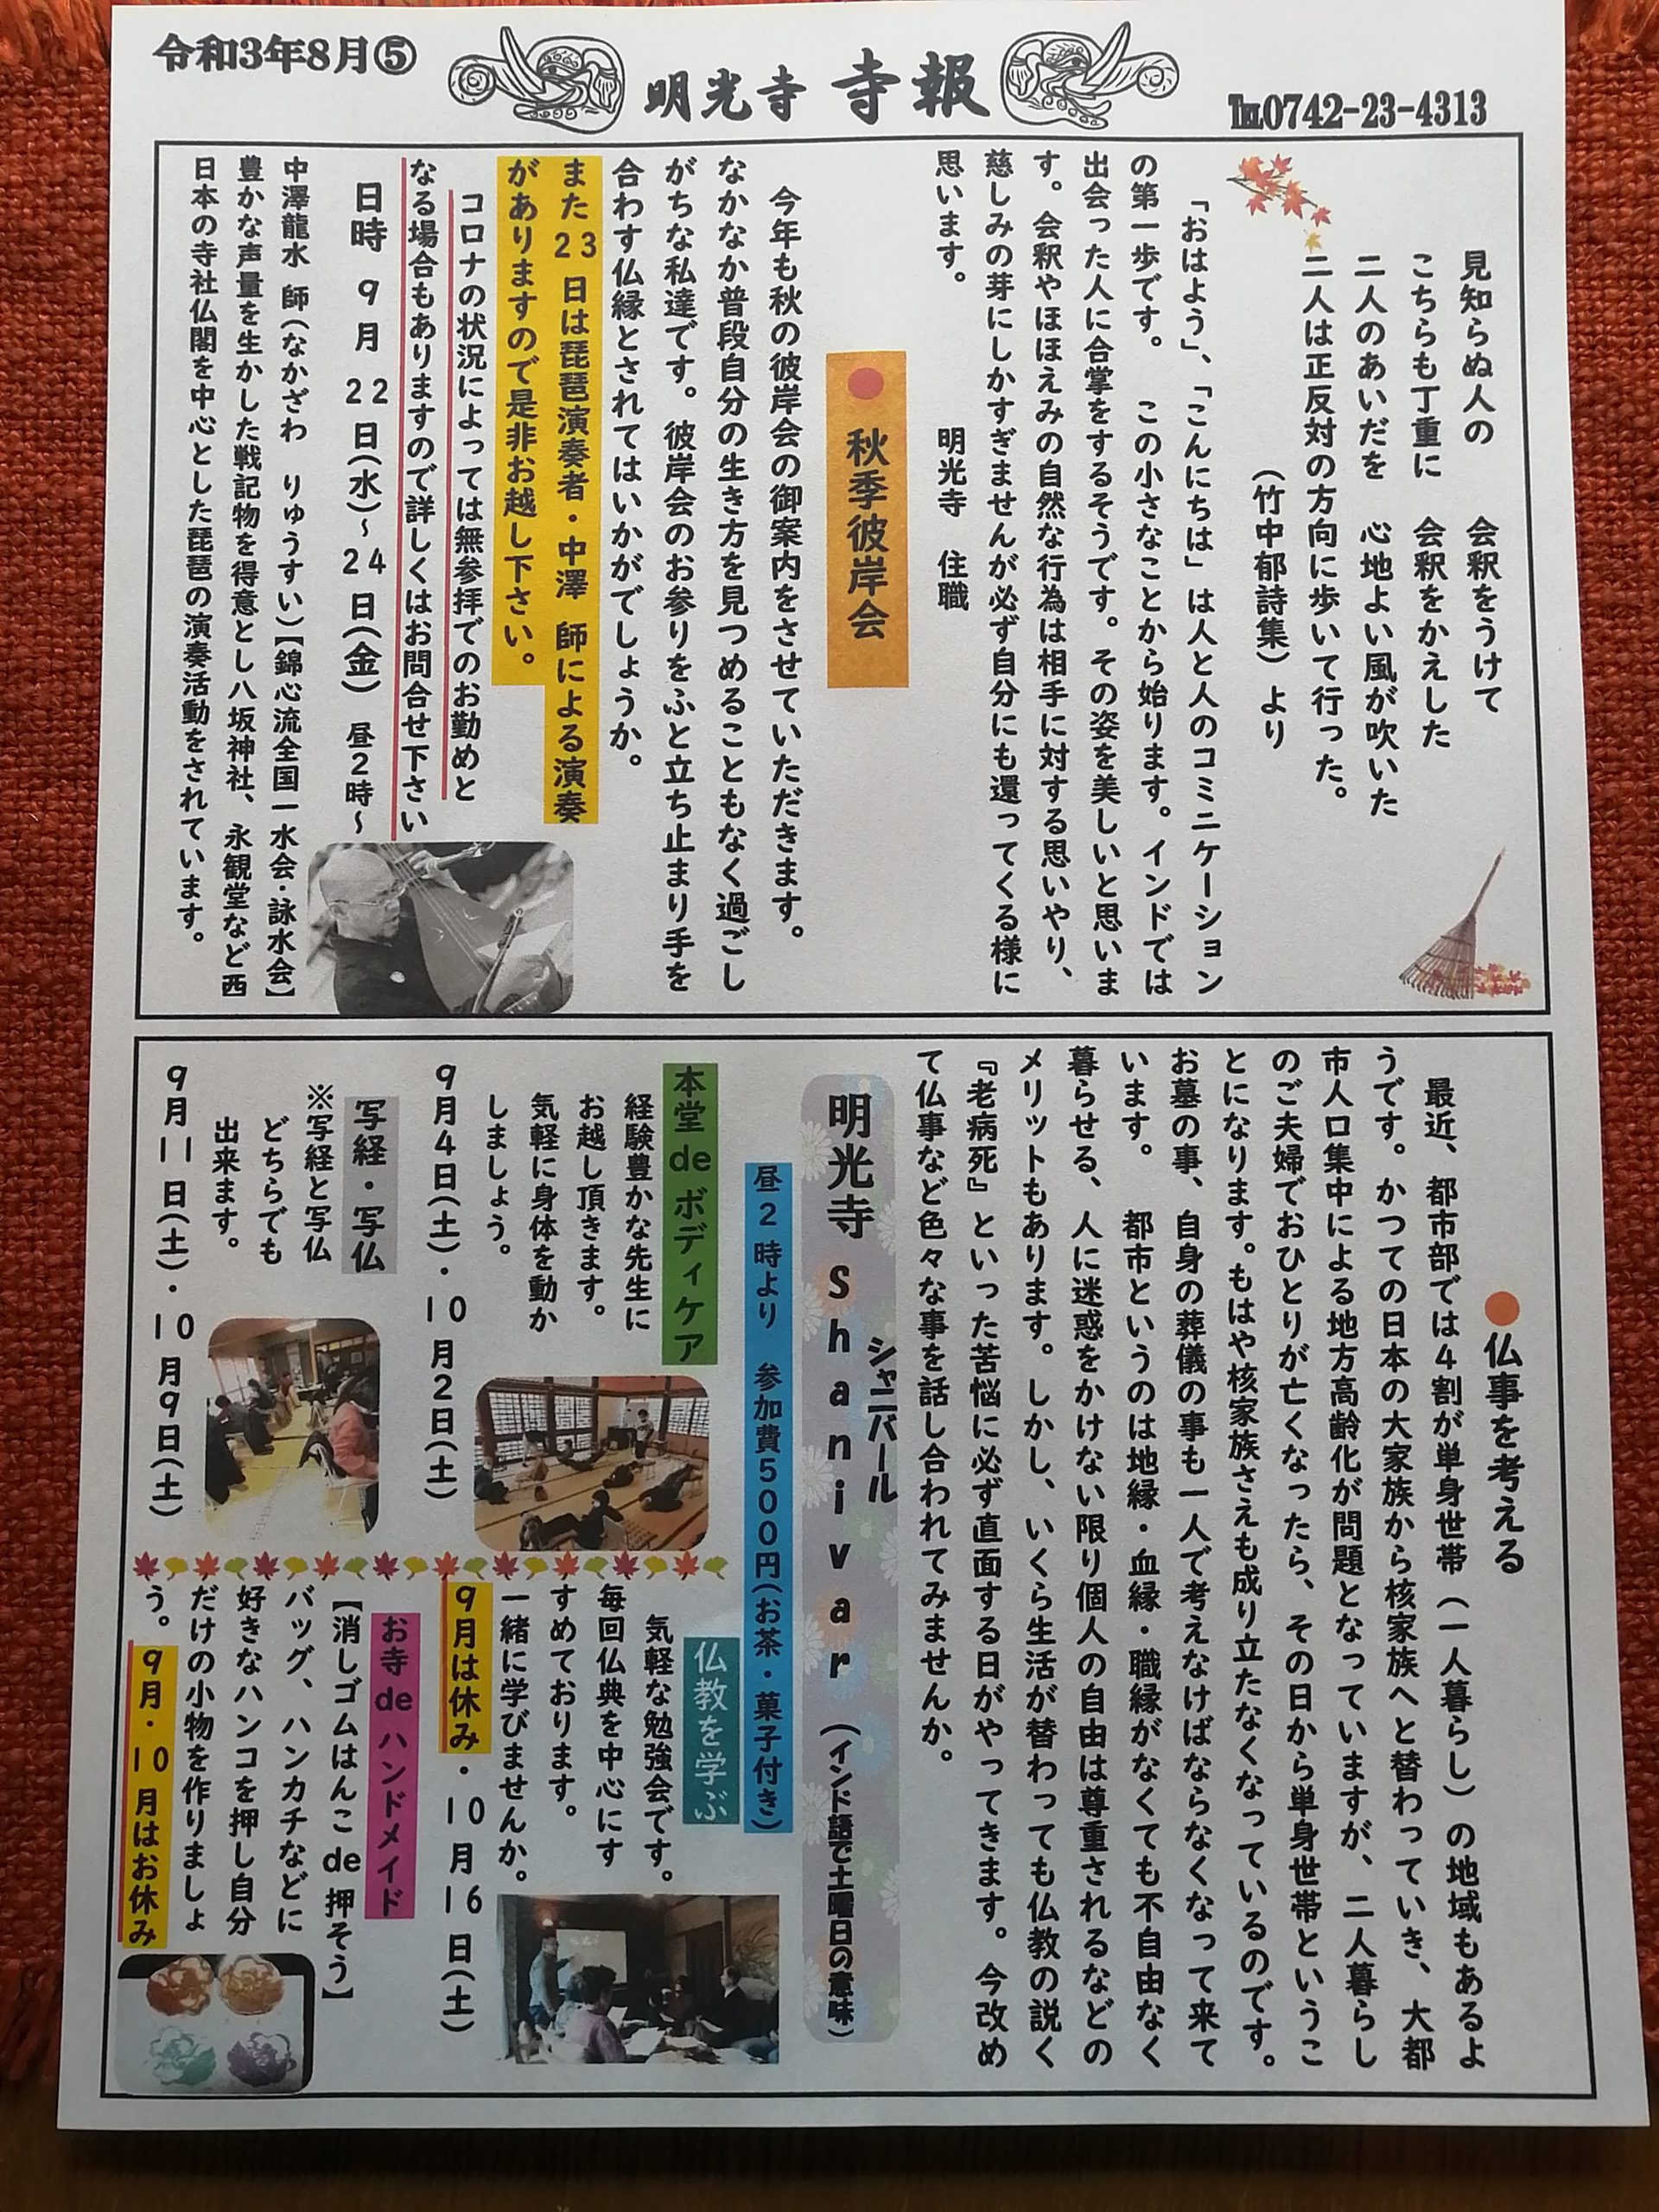 令和3年8月⑤
明光寺 寺報
℡0742-23-4313
見知らぬ人の 会釈をうけて
こちらも丁重に 会釈をかえした
二人のあいだを 心地よい風が吹いた
二人は正反対の方向に歩いて行った。
（竹中郁詩集）より
「おはよう」、「こんにちは」は人と人のコミニケーション
の第一歩です。 この小さなことから始ります。インドでは
出会った人に合掌をするそうです。その姿を美しいと思いま
す。会釈やほほえみの自然な行為は相手に対する思いやり、
慈しみの芽にしかすぎませんが必ず自分にも還ってくる様に
思います。 明光寺 住職
●秋季彼岸会
今年も秋の彼岸会の御案内をさせていただきます。
なかなか普段自分の生き方を見つめることもなく過ごし
がちな私達です。彼岸会のお参りをふと立ち止まり手を
合わす仏縁とされてはいかがでしょうか。
また23日は琵琶演奏者・中澤 師による演奏
がありますので是非お越し下さい。
コロナの状況によっては無参拝でのお勤めと
なる場合もありますので詳しくはお問合せ下さい
日時 9月22日(水)~24日(金) 昼2時~
中澤龍水 師(なかざわ りゅうすい)【錦心流全国一水会・詠水会】
豊かな声量を生かした戦記物を得意とし八坂神社、永観堂など西
日本の寺社仏閣を中心とした琵琶の演奏活動をされています。
●仏事を考える
最近、都市部では4割が単身世帯（一人暮らし）の地域もあるよ
うです。かつての日本の大家族から核家族へと替わっていき、大都
市人口集中による地方高齢化が問題となっていますが、二人暮らし
のご夫婦でおひとりが亡くなったら、その日から単身世帯というこ
とになります。もはや核家族さえも成り立たなくなっているのです。
お墓の事、自身の葬儀の事も一人で考えなければならなくなって来て
います。 都市というのは地縁・血縁・職縁がなくても不自由なく
暮らせる、人に迷惑をかけない限り個人の自由は尊重されるなどの
メリットもあります。しかし、いくら生活が替わっても仏教の説く
『老病死』といった苦悩に必ず直面する日がやってきます。今改め
て仏事など色々な事を話し合われてみませんか。
シャニバール
明光寺 Shanivar （インド語で土曜日の意味）
昼2時より 参加費500円(お茶・菓子付き)
本堂deボディケア
経験豊かな先生に
お越し頂きます。
気軽に身体を動か
しましょう。
9月4日(土)・10月2日(土)
写経・写仏
※写経と写仏
どちらでも
出来ます。
9月11日(土)・10月9日(土)
仏教を学ぶ
気軽な勉強会です。
毎回仏典を中心にす
すめております。
一緒に学びませんか。
9月は休み・10月16日(土)
お寺deハンドメイド
【消しゴムはんこde押そう】
バッグ、ハンカチなどに
好きなハンコを押し自分
だけの小物を作りましょ
う。 9月・10月はお休み